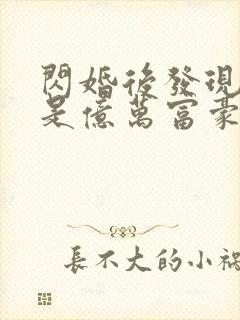 閃婚後發現
是億萬富豪
長不大的小禍